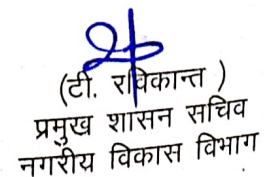 (टी. रविकान्त )
प्रमुख शासन सचिव
नगरीय विकास विभाग